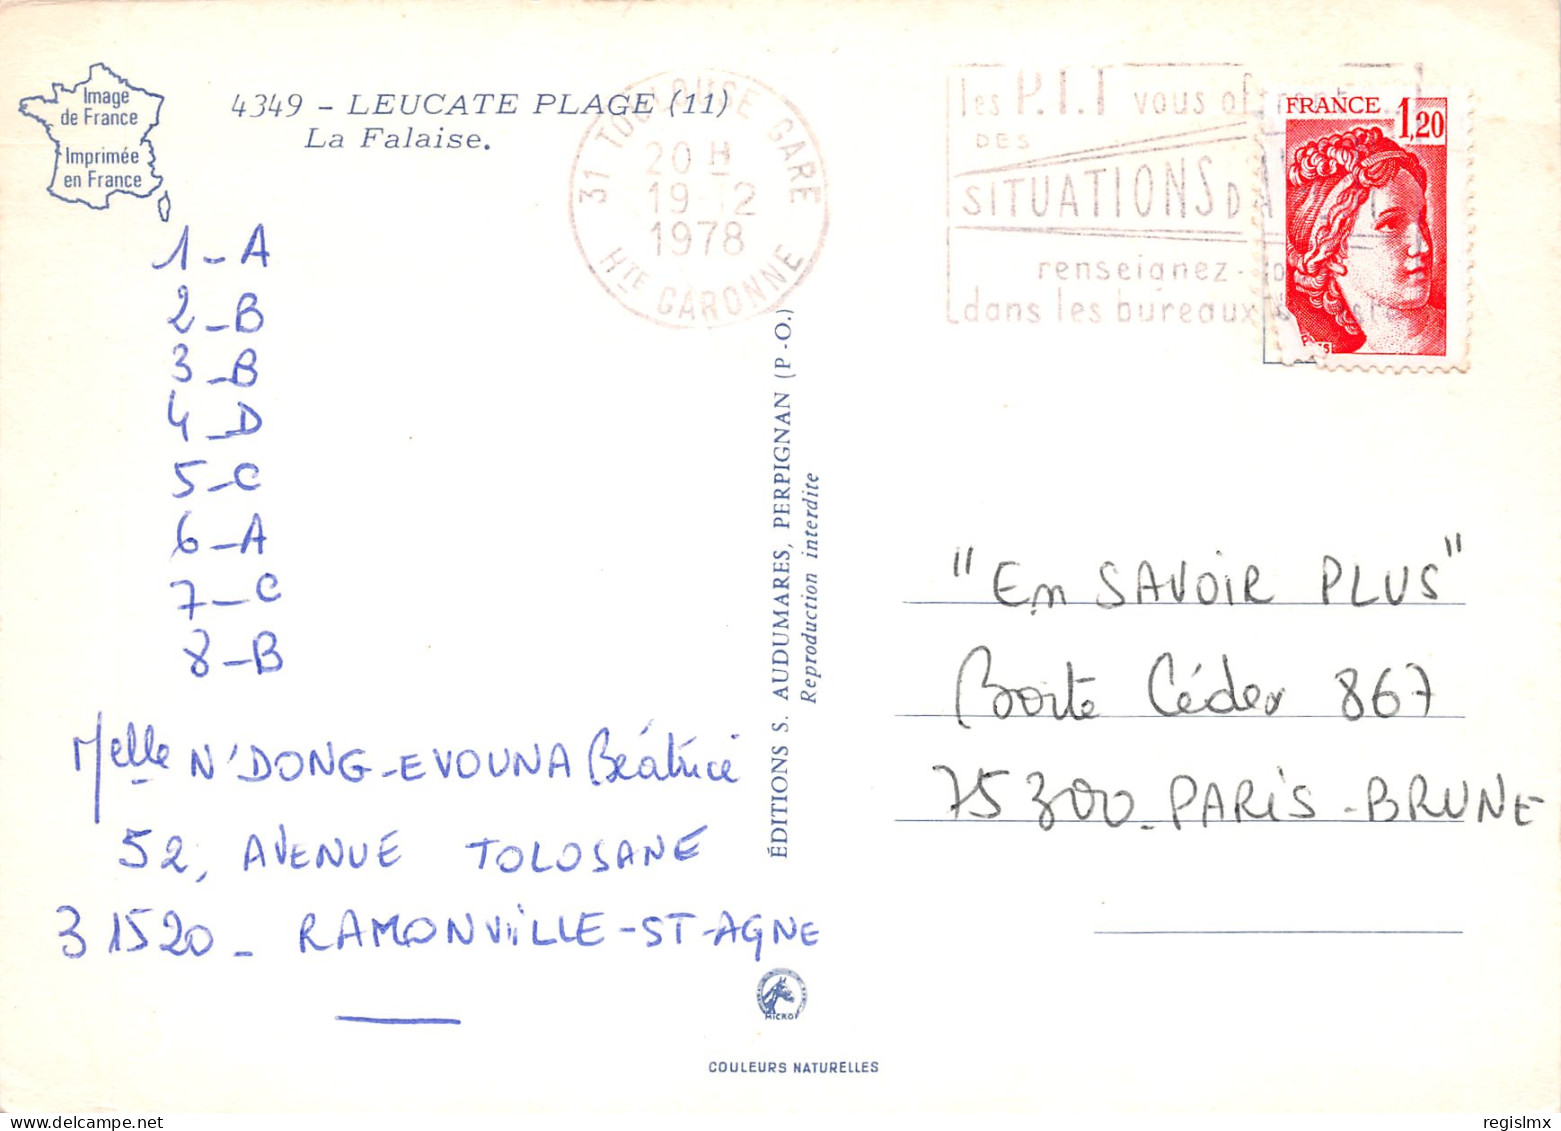 Image
de France
Imprimée
en France
4349 - LEUCATE PLAGE (11)
La Falaise.
31 TOULOUSE GARE
20 H
19-12
1978
HTE GARONNE
les P.T.T vous offrent
DES
SITUATIONS D'A
renseignez-
dans les bureaux
FRANCE 1,20
1-A
2-B
3-B
4-D
5-C
6-A
7-C
8-B
Melle N'DONG-EVOUNA Béatrice
52, AVENUE TOLOSANE
31520 - RAMONVILLE-ST-AGNE
ÉDITIONS S. AUDUMARES, PERPIGNAN (P.-O.)
Reproduction interdite
"En SAVOIR PLUS"
Boite Cédex 867
75300 - PARIS - BRUNE
MICRO
COULEURS NATURELLES
regislmx